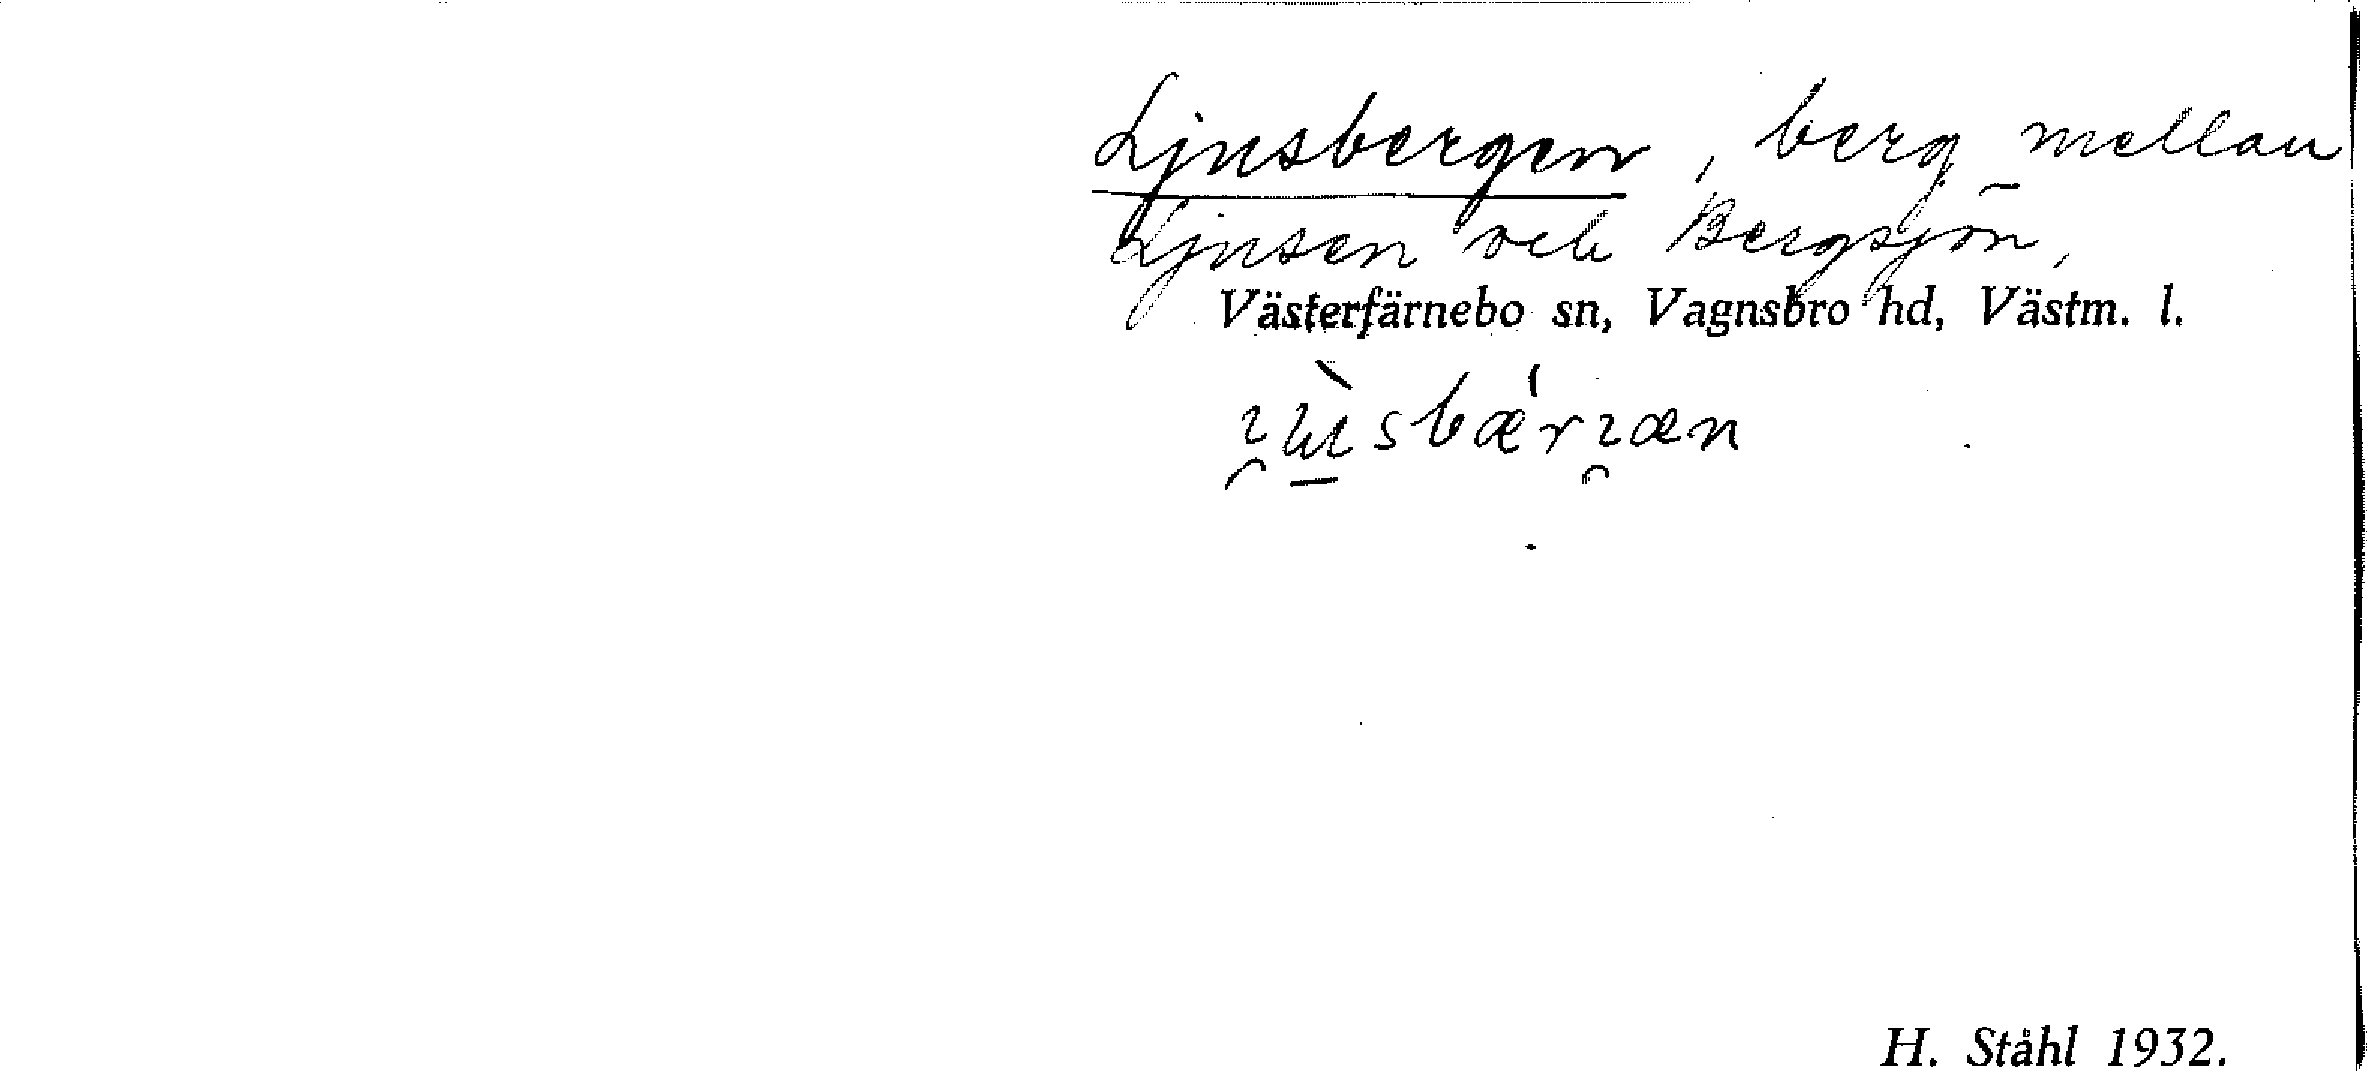 Ljusbergen, berg mellan
Ljusen och Bergsjön,
Västerfärnebo sn, Vagnsbro hd, Västm. l.
H. Ståhl 1932.